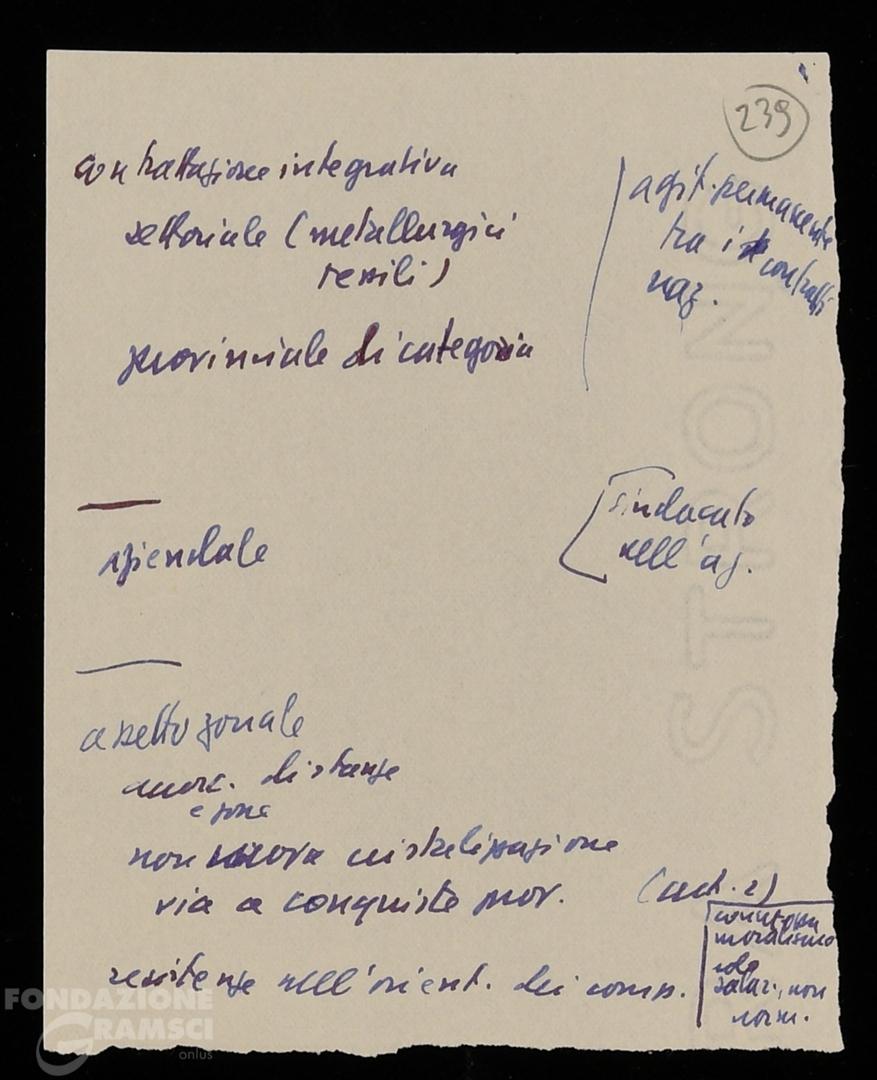 239
contrattazione integrativa
settoriale (metallurgici
tessili)
provinciale di categoria
agit. permanente
tra i contratti
naz.
aziendale
sindacato
nell'az.
assetto zonale
distanze
e zone
non nuova cristallizzazione
via a conquiste prov.
resistenze nell'orient. dei comp.
moralismo
solo
salar., non
norm.
STRONG
FONDAZIONE
GRAMSCI
onlus